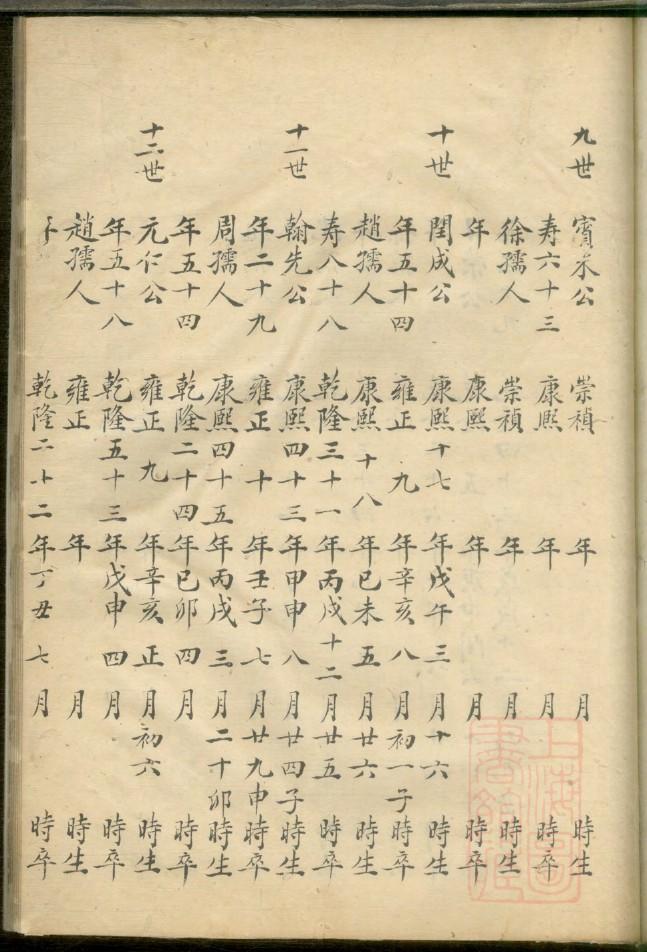 九世 賓朩公 崇禎 年 月 時生
寿六十三 康熙 年 月 時卒
徐孺人 崇禎 年 月 時生
年 康熙 年 月 時卒
十世 閏成公 康熙十七年戊午三月十六 時生
年五十四 雍正九年辛亥八月初一子時卒
趙孺人 康熙十八年己未五月廿六 時生
寿八十八 乾隆三十一年丙戌十二月廿五 時卒
十一世 翰先公 康熙四十三年甲申八月廿四子時生
年二十九 雍正十年壬子七月廿九申時卒
周孺人 康熙四十五年丙戌三月二十卯時生
年五十四 乾隆二十四年己卯四月 時卒
十二世 元仁公 雍正九年辛亥正月初六 時生
年五十八 乾隆五十三年戊申四月 時卒
趙孺人 雍正 年 月 時生
年 乾隆二十二年丁丑七月 時卒
上海圖書館藏